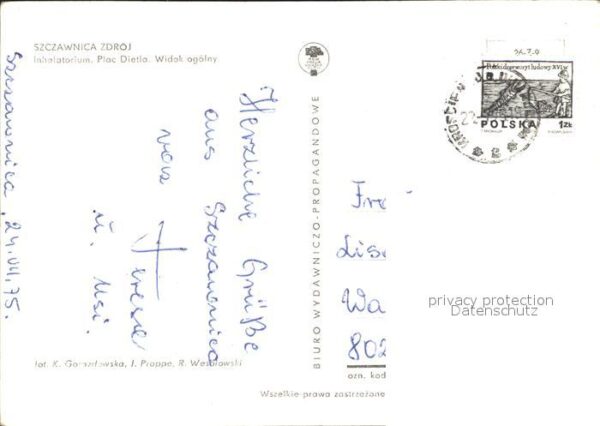 SZCZAWNICA ZDRÓJ
Inhalatorium. Plac Dietla. Widok ogólny
Szczawnica, 24.VII.75.
Herzliche Grüße
aus Szczawnica
von
Teresa
u. Usi.
fot. K. Gorazdowska, J. Proppe, R. Wesołowski
BIURO WYDAWNICZO-PROPAGANDOWE
Fra
Lis
Wa
802
ozn. kod
Wszelkie prawa zastrzeżone
POLSKA
1 ZŁ
privacy protection
Datenschutz